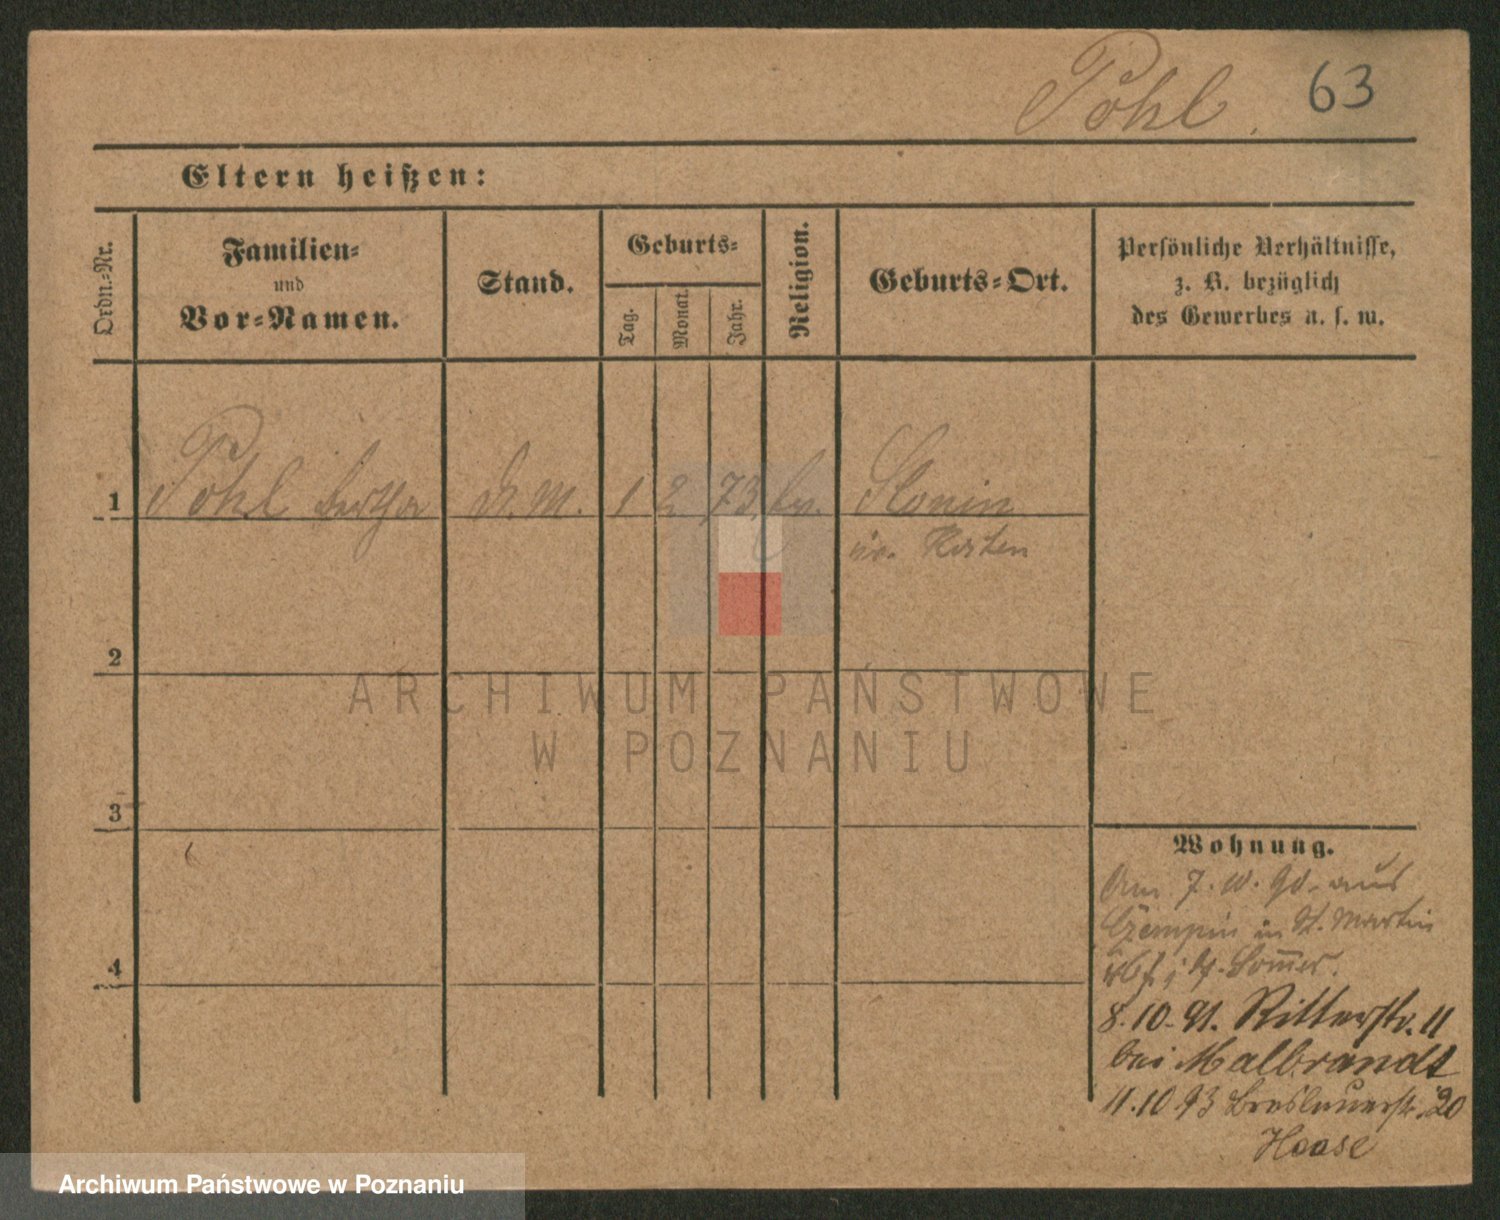 Pohl. 63
Eltern heißen:
Ordn.-Nr.
Familien-
und
Vor-Namen.
Stand.
Geburts-
Tag.
Monat.
Jahr.
Religion.
Geburts-Ort.
Persönliche Verhältnisse,
z. B. bezüglich
des Gewerbes u. s. w.
1 Pohl Bertha D. M. 1 2 73 ev. Slonin
Kr. Kosten
2
3
4
Wohnung.
Am 7. 10. 90. aus
Czempin in St. Martin
b. Sommer.
8.10.91. Ritterstr. 11
bei Malbrandt
11.10 93 Breslauerstr. 20
Haase
ARCHIWUM PAŃSTWOWE
W POZNANIU
Archiwum Państwowe w Poznaniu